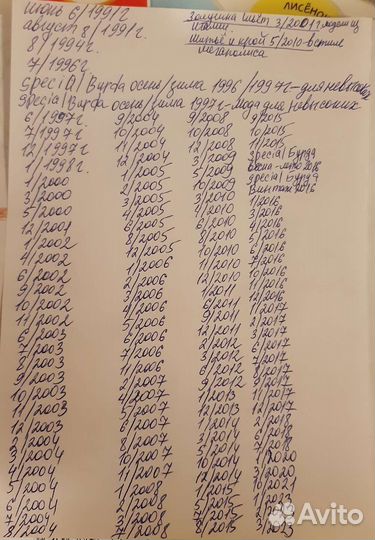 ЛИСЁНО
июнь 6/1991г
август 8/1991г.
8/1994г.
7/1996г
Золушка шьёт 3/2001г
шитьё и крой 5/2010 - в стиле
мегаполиса
special/Бурда осень/зима 1996/1997г - для невысоких
special/Бурда осень/зима 1997г - мода для невысоких
6/1997г.
7/1997г
12/1997г
1/1998г.
1/2000
3/2000
5/2000
12/2001
1/2002
4/2002
6/2002
9/2002
10/2002
11/2002
6/2003
7/2003
8/2003
9/2003
10/2003
11/2003
12/2003
3/2004
4/2004
5/2004
6/2004
7/2004
8/2004
9/2004
10/2004
11/2004
12/2004
1/2005
2/2005
3/2005
4/2005
6/2005
8/2005
12/2005
1/2006
2/2006
3/2006
4/2006
5/2006
6/2006
7/2006
11/2006
2/2007
4/2007
5/2007
6/2007
8/2007
10/2007
11/2007
1/2008
2/2008
3/2008
7/2008
9/2008
10/2008
12/2008
3/2009
5/2009
10/2009
3/2010
4/2010
6/2010
8/2010
10/2010
11/2010
12/2010
1/2011
6/2011
9/2011
12/2011
2/2012
3/2012
6/2012
9/2012
1/2013
12/2013
1/2014
3/2014
5/2014
10/2014
1/2015
3/2015
5/2015
8/2015
9/2015
10/2015
11/2015
special Бурда
весна-лето 2016
special Бурда
Винтаж 2016
1/2016
3/2016
4/2016
5/2016
6/2016
7/2016
10/2016
11/2016
12/2016
3/2017
5/2017
6/2017
7/2017
8/2017
11/2017
12/2017
2/2018
6/2018
7/2018
1/2020
3/2020
10/2021
1/2023
2/2023
3/2023
Avito